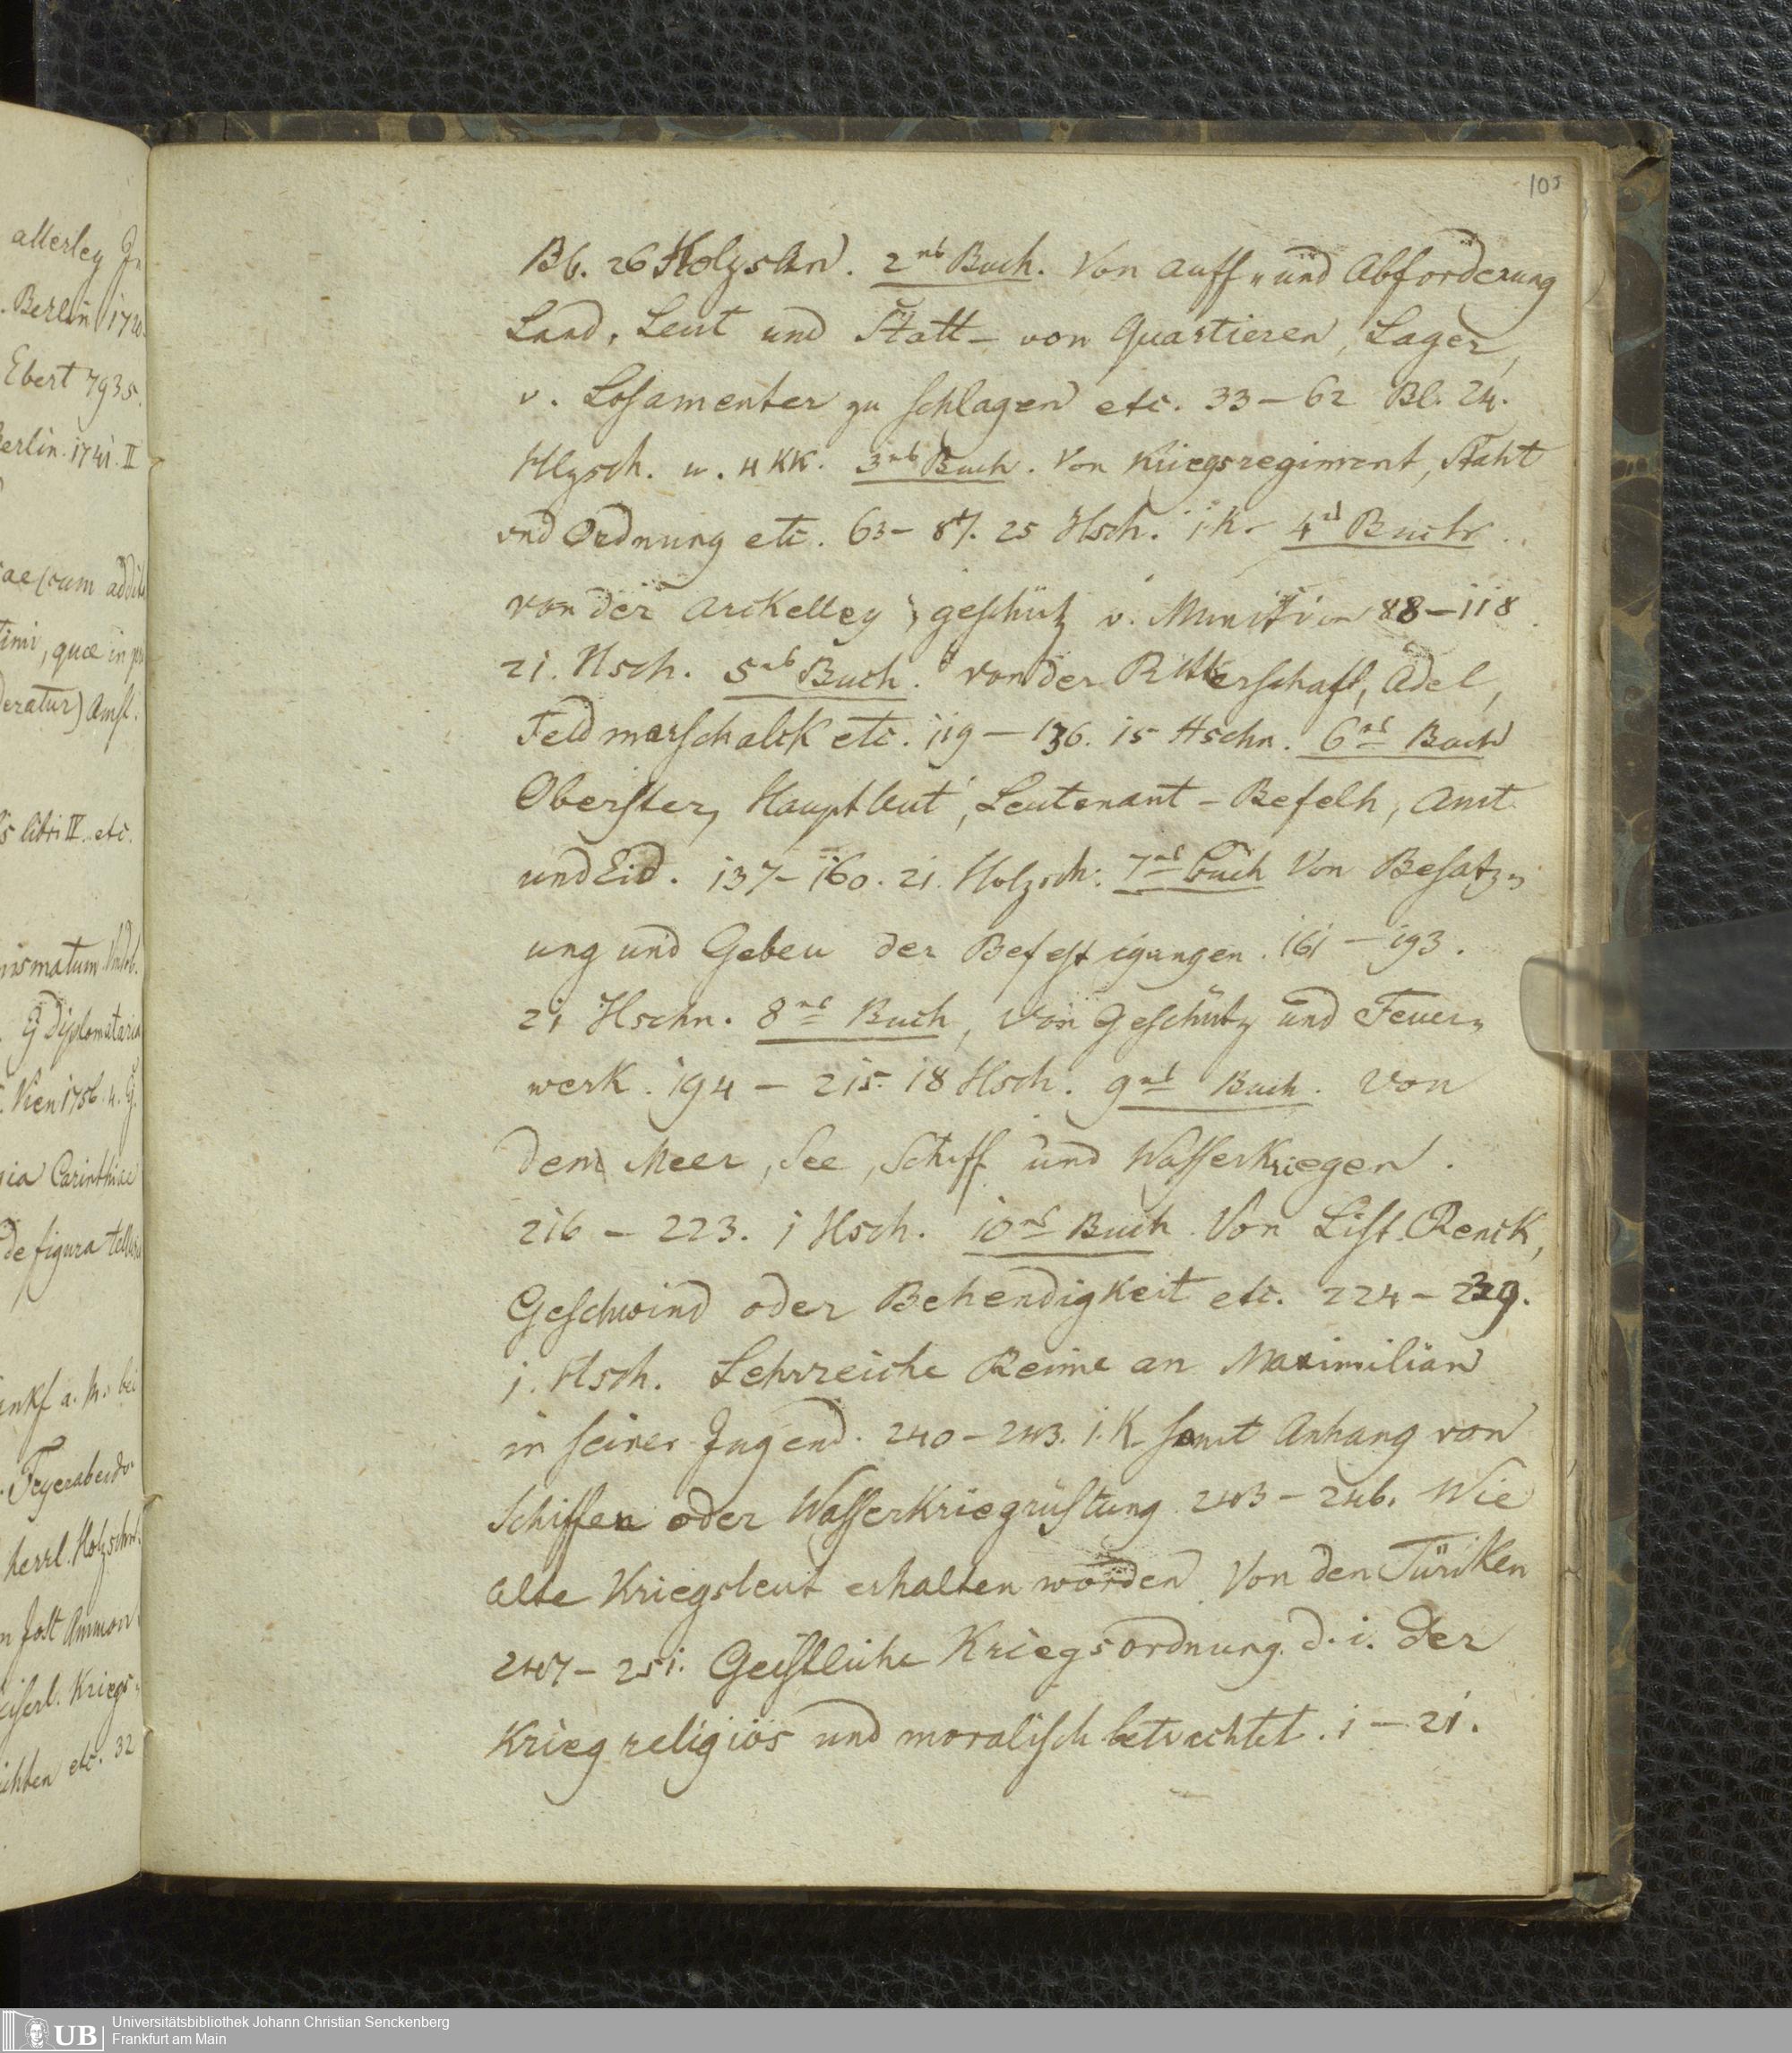 105
Bl. 26 Holzschn. 2tes Buch. Von auff- und Abforderung
Land, Leut und Statt – von Quartieren, Lager,
v. Losamenter zu schlagen etc. 33–62 Bl. 24.
Hlzsch. u. 4 KK. 3tes Buch. Von Kriegsregiment, Staht
und Ordnung etc. 63–87. 25 Hsch. 1 K. 4tes Buch.
von der Arckelley, geschütz v. Munition 88–118.
21. Hsch. 5tes Buch. von der Ritterschaft, Adel,
Feldmarschalck etc. 119–136. 15 Hschn. 6tes Buch
Oberster, Hauptleut, Leutenant – Befelh, Amt
und Eid. 137–160. 21. Holzsch. 7tes Buch Von Besatz-
ung und Gebeu der Befestigungen. 161–193.
21 Hschn. 8tes Buch, von Geschütz und Feuer-
werk. 194–215. 18 Hsch. 9tes Buch. Von
dem Meer, See, Schiff und Wasserkriegen.
216–223. 1 Hsch. 10tes Buch Von List, Renck,
Geschwind oder Behendigkeit etc. 224–239.
1. Hsch. Lehrreiche Reime an Maximilian
in seiner Jugend. 240–243. 1. K samt Anhang von
Schiffen oder Wasserkriegrüstung 243–246. Wie
alte Kriegsleut erhalten worden. Von den Türcken
247–251. Geistliche Kriegsordnung. d. i. Der
Krieg religiös und moralisch betrachtet. 1–21.
allerley
Berlin 1720.
Ebert 7935.
Berlin. 1741. II
cum
quae in
Amst.
libri IV. etc.
Vien 1756. 4.
Carinthiae
de figura
a. M. bei
Feyerabends
herrl. Holzschn.
Jost Ammon
Kriegs-
etc. 32
UB
Universitätsbibliothek Johann Christian Senckenberg
Frankfurt am Main